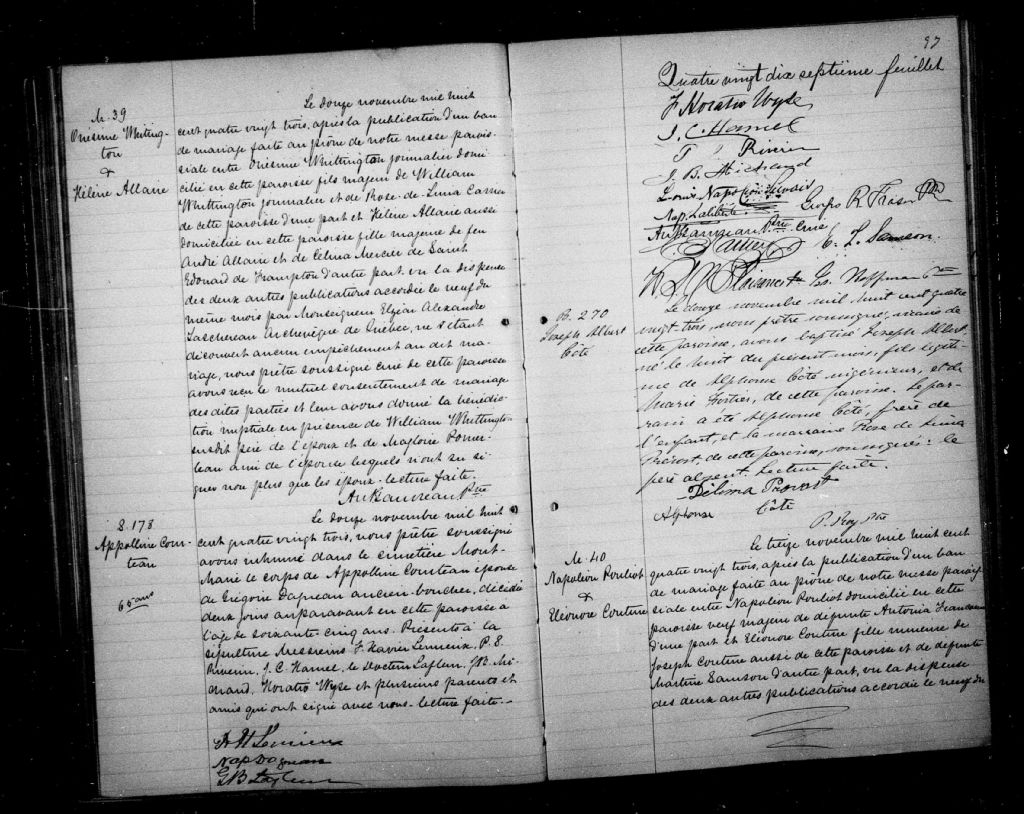 M. 39
Onésime Whitting-
ton
&
Hélène Allaire
Le douze novembre mil huit
cent quatre vingt trois, après la publication d'un ban
de mariage faite au prône de notre messe parois-
siale entre Onésime Whittington journalier domi-
cilié en cette paroisse fils majeur de William
Whittington journalier et de Rose-de-Lima
de cette paroisse d'une part et Hélène Allaire aussi
domiciliée en cette paroisse fille majeure de feu
André Allaire et de Célina Mercier de Saint
Edouard de Frampton d'autre part, vu la dispense
des deux autres publications accordée le neuf du
même mois par Monseigneur Elzéar Alexandre
Taschereau Archevêque de Québec, ne s'étant
découvert aucun empêchement au dit ma-
riage, nous prêtre soussigné curé de cette paroisse
avons reçu le mutuel consentement de mariage
des dites parties et leur avons donné la bénédic-
tion nuptiale en présence de William Whittington
susdit père de l'époux et de Magloire
ami de l'épouse lesquels n'ont su si-
gner non plus que les époux. lecture faite.
Ptre
S. 178
Appolline Com-
teau
65 ans
Le douze novembre mil huit
cent quatre vingt trois, nous prêtre soussigné
avons inhumé dans le cimetière Mont-
Marie le corps de Appolline Comteau épouse
de Grégoire Dagneau ancien boucher, décédée
deux jours auparavant en cette paroisse a
l'âge de soixante cinq ans. Présents à la
sépulture Messieurs F. Xavier Lemieux, P. S.
Riverin, J. C. Hamel, le Docteur Laflem, J.B. Mi-
chaud, Horatio Wyse et plusieurs parents et
amis qui ont signé avec nous. lecture faite.
Lemieux
Nap Dagneau
97
Quatre vingt dix septième feuillet
F Horatio Wyse
J. C. Hamel
Riverin
J. B. Michaud
Louis Napoléon
Nap. Laliberté
Ptre Curé
E. L. Samson
Hoffman
B. 270
Joseph Albert
Côté
Le douze novembre mil huit cent quatre
vingt trois, nous prêtre soussigné, vicaire de
cette paroisse, avons baptisé Joseph Albert
né le huit du présent mois, fils légiti-
me de Alphonse Côté ingénieur, et de
Marie Fortier, de cette paroisse. Le par-
rain a été Alphonse Côté, frère de
l'enfant, et la marraine Rose de Lima
Prévost, de cette paroisse, soussignés: le
père absent. Lecture faite.
Délima Prevost
Alphonse Côté
P. Roy Ptre
M. 40
Napoléon Pouliot
&
Eléonore Couture
Le treize novembre mil huit cent
quatre vingt trois, après la publication d'un ban
de mariage faite au prône de notre messe parois-
siale entre Napoléon Pouliot domicilié en cette
paroisse veuf majeur de défunte Antonia
d'une part et Eléonore Couture fille mineure de
Joseph Couture aussi de cette paroisse et de défunte
Martine Samson d'autre part, vu la dispense
des deux autres publications accordée le neuf du